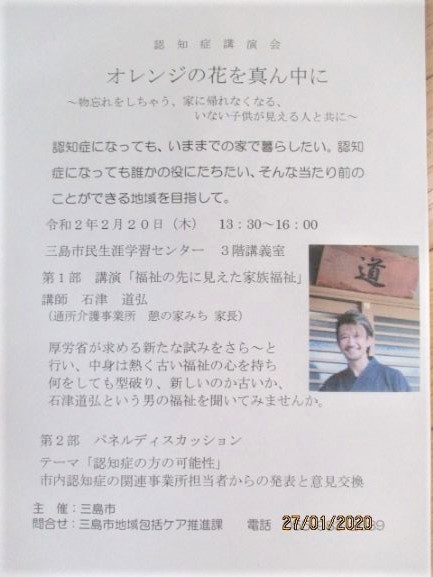 認知症講演会
オレンジの花を真ん中に
～物忘れをしちゃう、家に帰れなくなる、
いない子供が見える人と共に～
認知症になっても、いままでの家で暮らしたい。認知
症になっても誰かの役にたちたい、そんな当たり前の
ことができる地域を目指して。
令和２年２月２０日（木） 13：30～16：00
三島市民生涯学習センター ３階講義室
道
第１部 講演「福祉の先に見えた家族福祉」
講師 石津 道弘
（通所介護事業所 憩の家みち 家長）
厚労省が求める新たな試みをさら～と
行い、中身は熱く古い福祉の心を持ち
何をしても型破り、新しいのか古いか、
石津道弘という男の福祉を聞いてみませんか。
第２部 パネルディスカッション
テーマ「認知症の方の可能性」
市内認知症の関連事業所担当者からの発表と意見交換
主 催：三島市
問合せ：三島市地域包括ケア推進課 電話
27/01/2020